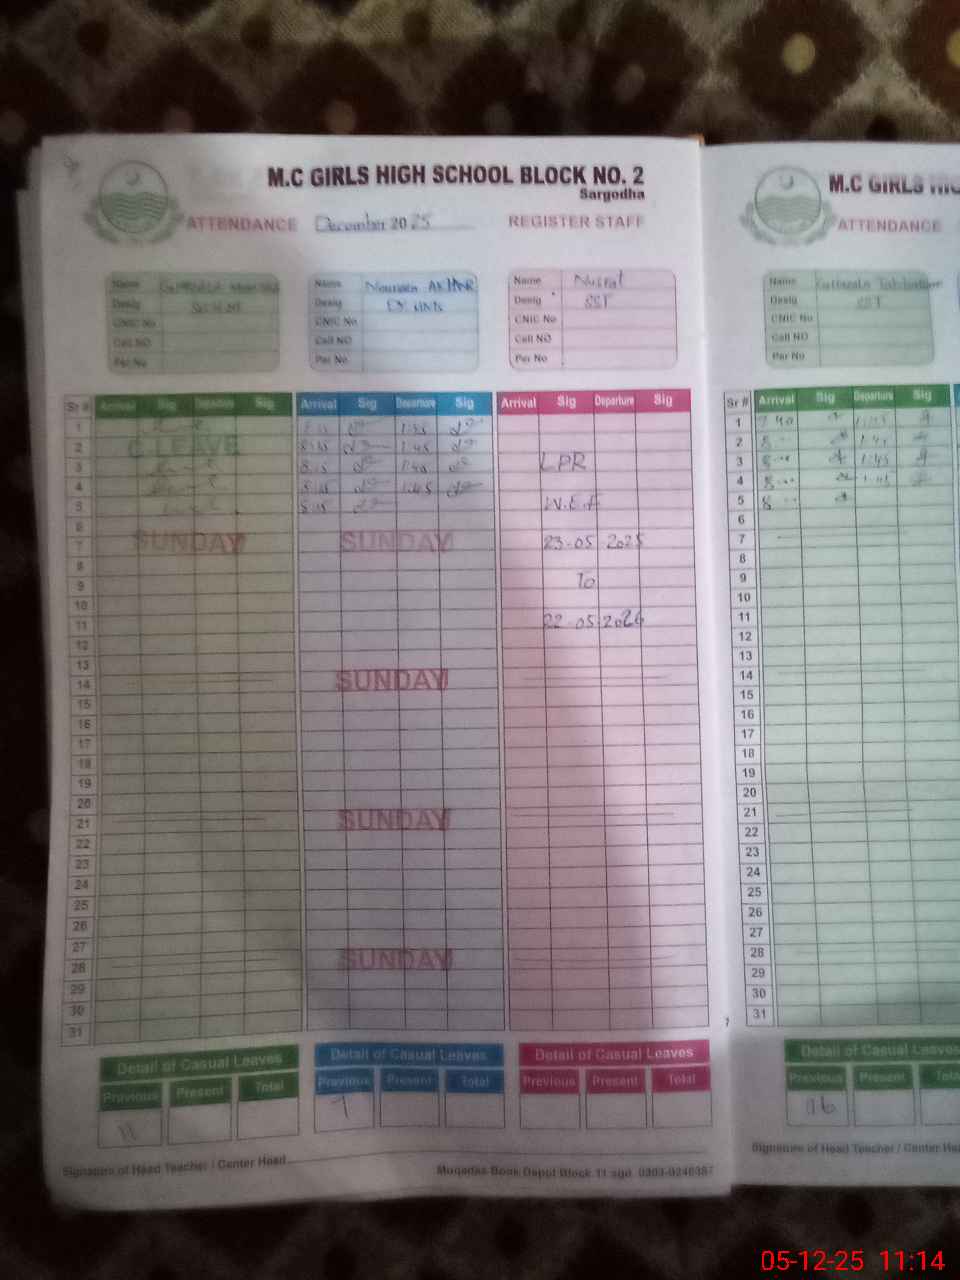 M.C GIRLS HIGH SCHOOL BLOCK NO. 2
Sargodha
ATTENDANCE December 2025 REGISTER STAFF
Name
Desig
CNIC No
Cell NO
Per No
Name Noureen AKHTAR
Desig
CNIC No
Cell NO
Per No
Name Nusrat
Desig SST
CNIC No
Cell NO
Per No
Sr # Arrival Sig Departure Sig Arrival Sig Departure Sig Arrival Sig Departure Sig
1
2 C.LEAVE 8:15 1:45
3 8:15 1:45 LPR
4 8:15 1:45
5 8:15 W.E.F
6
7 SUNDAY SUNDAY 23-05-2025
8
9 To
10
11 22-05-2026
12
13
14 SUNDAY
15
16
17
18
19
20
21 SUNDAY
22
23
24
25
26
27
28 SUNDAY
29
30
31
Detail of Casual Leaves Detail of Casual Leaves Detail of Casual Leaves
Previous Present Total Previous Present Total Previous Present Total
11 7
Signature of Head Teacher / Center Head
Muqadas Book Depot Block 11 sgd.
M.C GIRLS
ATTENDANCE
Name
Desig SST
CNIC No
Cell NO
Per No
Sr # Arrival Sig Departure Sig
1 7:40
2 8 1:45
3 8 1:45
4 8 1:45
5 8
6
7
8
9
10
11
12
13
14
15
16
17
18
19
20
21
22
23
24
25
26
27
28
29
30
31
Detail of Casual Leaves
Previous Present
16
Signature of Head Teacher / Center
05-12-25 11:14